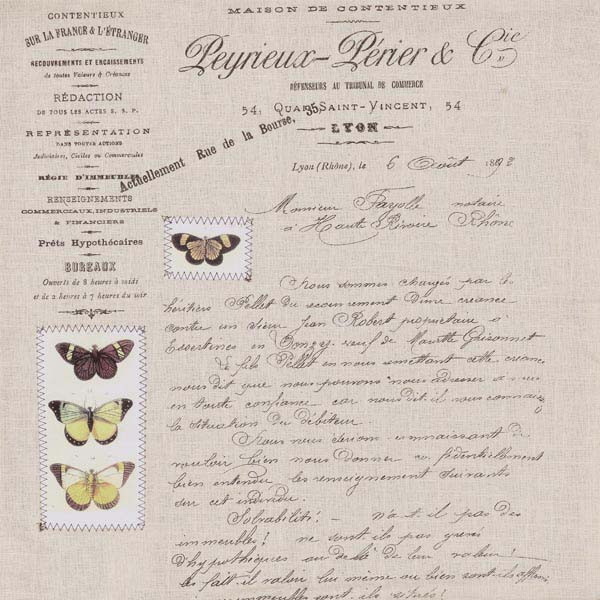 CONTENTIEUX
SUR LA FRANCE & L'ÉTRANGER
RECOUVREMENTS ET ENCAISSEMENTS
de toutes Valeurs & Créances
RÉDACTION
DE TOUS LES ACTES S. S. P.
REPRÉSENTATION
DANS TOUTES ACTIONS
Judiciaires, Civiles ou Commerciales
RÉGIE D'IMMEUBLES
RENSEIGNEMENTS
COMMERCIAUX, INDUSTRIELS
& FINANCIERS
Prêts Hypothécaires
BUREAUX
Ouverts de 8 heures à midi
et de 2 heures à 7 heures du soir
MAISON DE CONTENTIEUX
Peyrieux-Périer & Cie
DÉFENSEURS AU TRIBUNAL DE COMMERCE
54, Quai Saint-Vincent, 54
LYON
Actuellement Rue de la Bourse, 35,
Lyon (Rhône), le 6 Août 1892
Monsieur Fayolle notaire
à Haute Rivoire Rhône
Nous sommes chargés par les
héritiers Pellet du recouvrement d'une creance
contre un sieur Jean Robert propriétaire à
Essertines en Donzy veuf de Mariette Grisonnet
Le fils Pellet en nous remettant cette creance
nous dit que nous pouvons nous adresser à vous
en toute confiance car nous dit-il vous connaissez
la situation du débiteur.
Nous vous serions connaissant de
vouloir bien nous donner confidentiellement
bien entendu les renseignement suivants
sur cet individu.
Solvabilité: - n'a t. il pas des
immeubles? ne sont ils pas grevés
d'hypothèques au delà de leur valeur!
les fait il valoir lui même ou bien sont-ils affermés
immeubles, où sont ils situés!